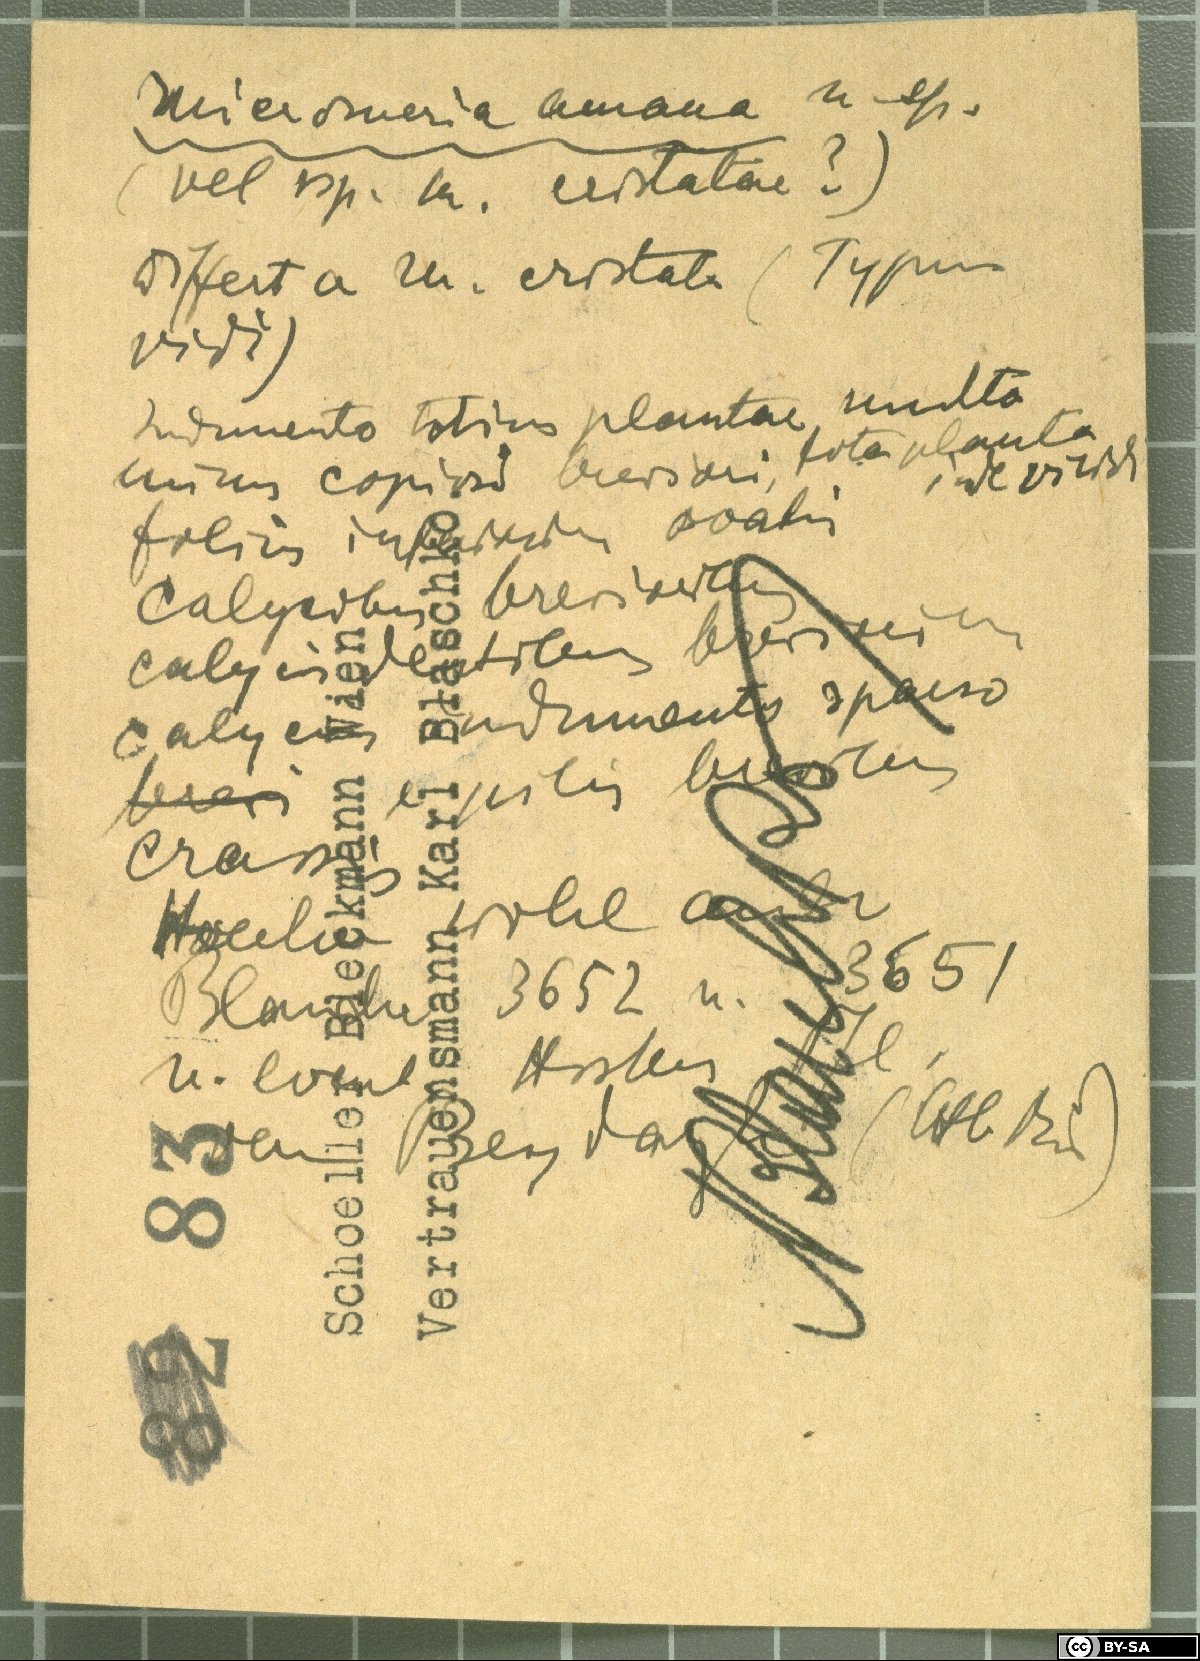 Micromeria amana n. sp.
(vel ssp. M. cristatae?)
differt a M. cristata (Typus
vidi)
Indumento totius plantae multo
minus copioso breviori, tota planta
inde viridi
foliis inferioribus ovatis
calycibus brevioribus
calycis dentibus brevioribus
calycis indumento sparso
brevi e pilis brevibus
crassis
wohl auch
3652 u. 3651
u. event
vom Beydagh
83
82
Schoeller Bleckmann Wien
Vertrauensmann Karl Blaschko
BY-SA